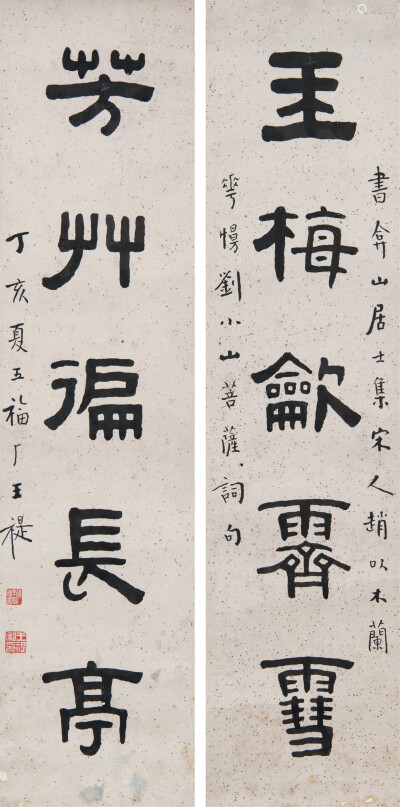 書弇山居士集宋人趙以木蘭
玉梅歛霽雪
華慢劉小山菩薩、詞句
芳艸徧長亭
丁亥夏五福厂王禔